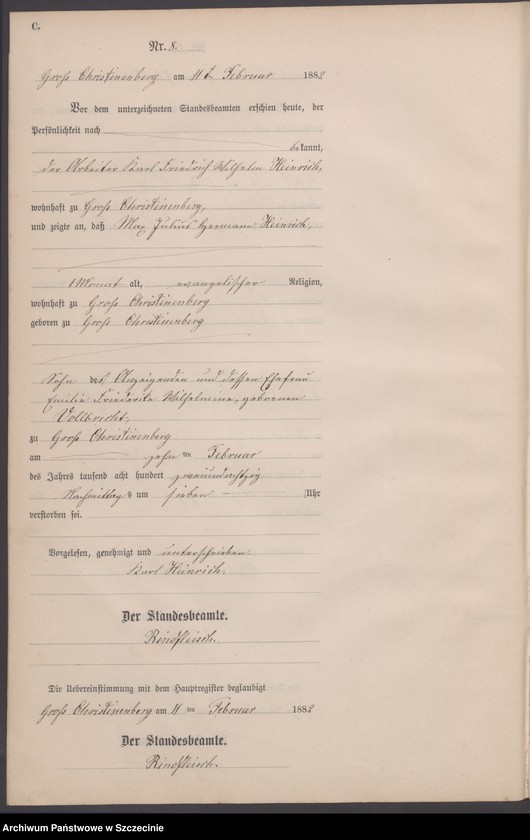 C.
Nr. 8.
Groß Christinenberg am 11 ten Februar 1882
Vor dem unterzeichneten Standesbeamten erschien heute, der
Persönlichkeit nach
bekannt,
der Arbeiter Karl Friedrich Wilhelm Heinrich,
wohnhaft zu Groß Christinenberg,
und zeigte an, daß Max Julius Hermann Heinrich,
1 Monat alt, evangelischer Religion,
wohnhaft zu Groß Christinenberg
geboren zu Groß Christinenberg
Sohn des Anzeigenden und dessen Ehefrau
Emilie Friederike Wilhelmine, geborenen
Vollbrecht,
zu Groß Christinenberg
am zehn ten Februar
des Jahres tausend acht hundert zweiundachtzig
Nachmittags um sieben Uhr
verstorben sei.
Vorgelesen, genehmigt und unterschrieben.
Karl Heinrich.
Der Standesbeamte.
Rindfleisch.
Die Uebereinstimmung mit dem Hauptregister beglaubigt
Groß Christinenberg am 11 ten Februar 1882
Der Standesbeamte.
Rindfleisch.
Archiwum Państwowe w Szczecinie